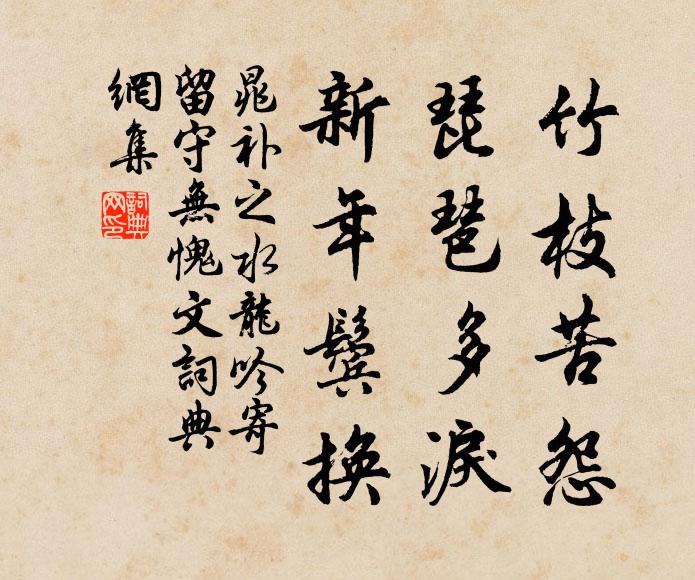 竹枝苦怨
琵琶多淚
新年鬢換
晁补之水龍吟寄
留守無愧文詞典
網集
詞典
网印